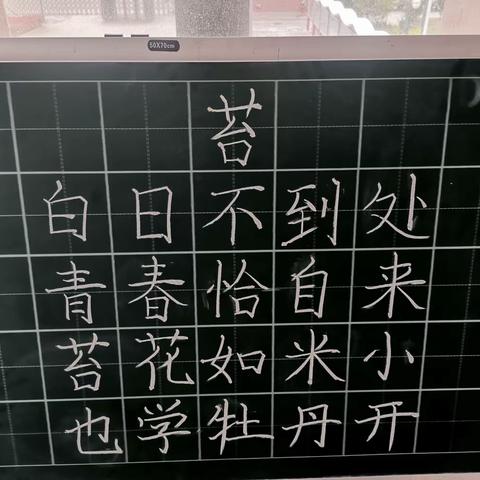 50X70cm
苔
白日不到处
青春恰自来
苔花如米小
也学牡丹开